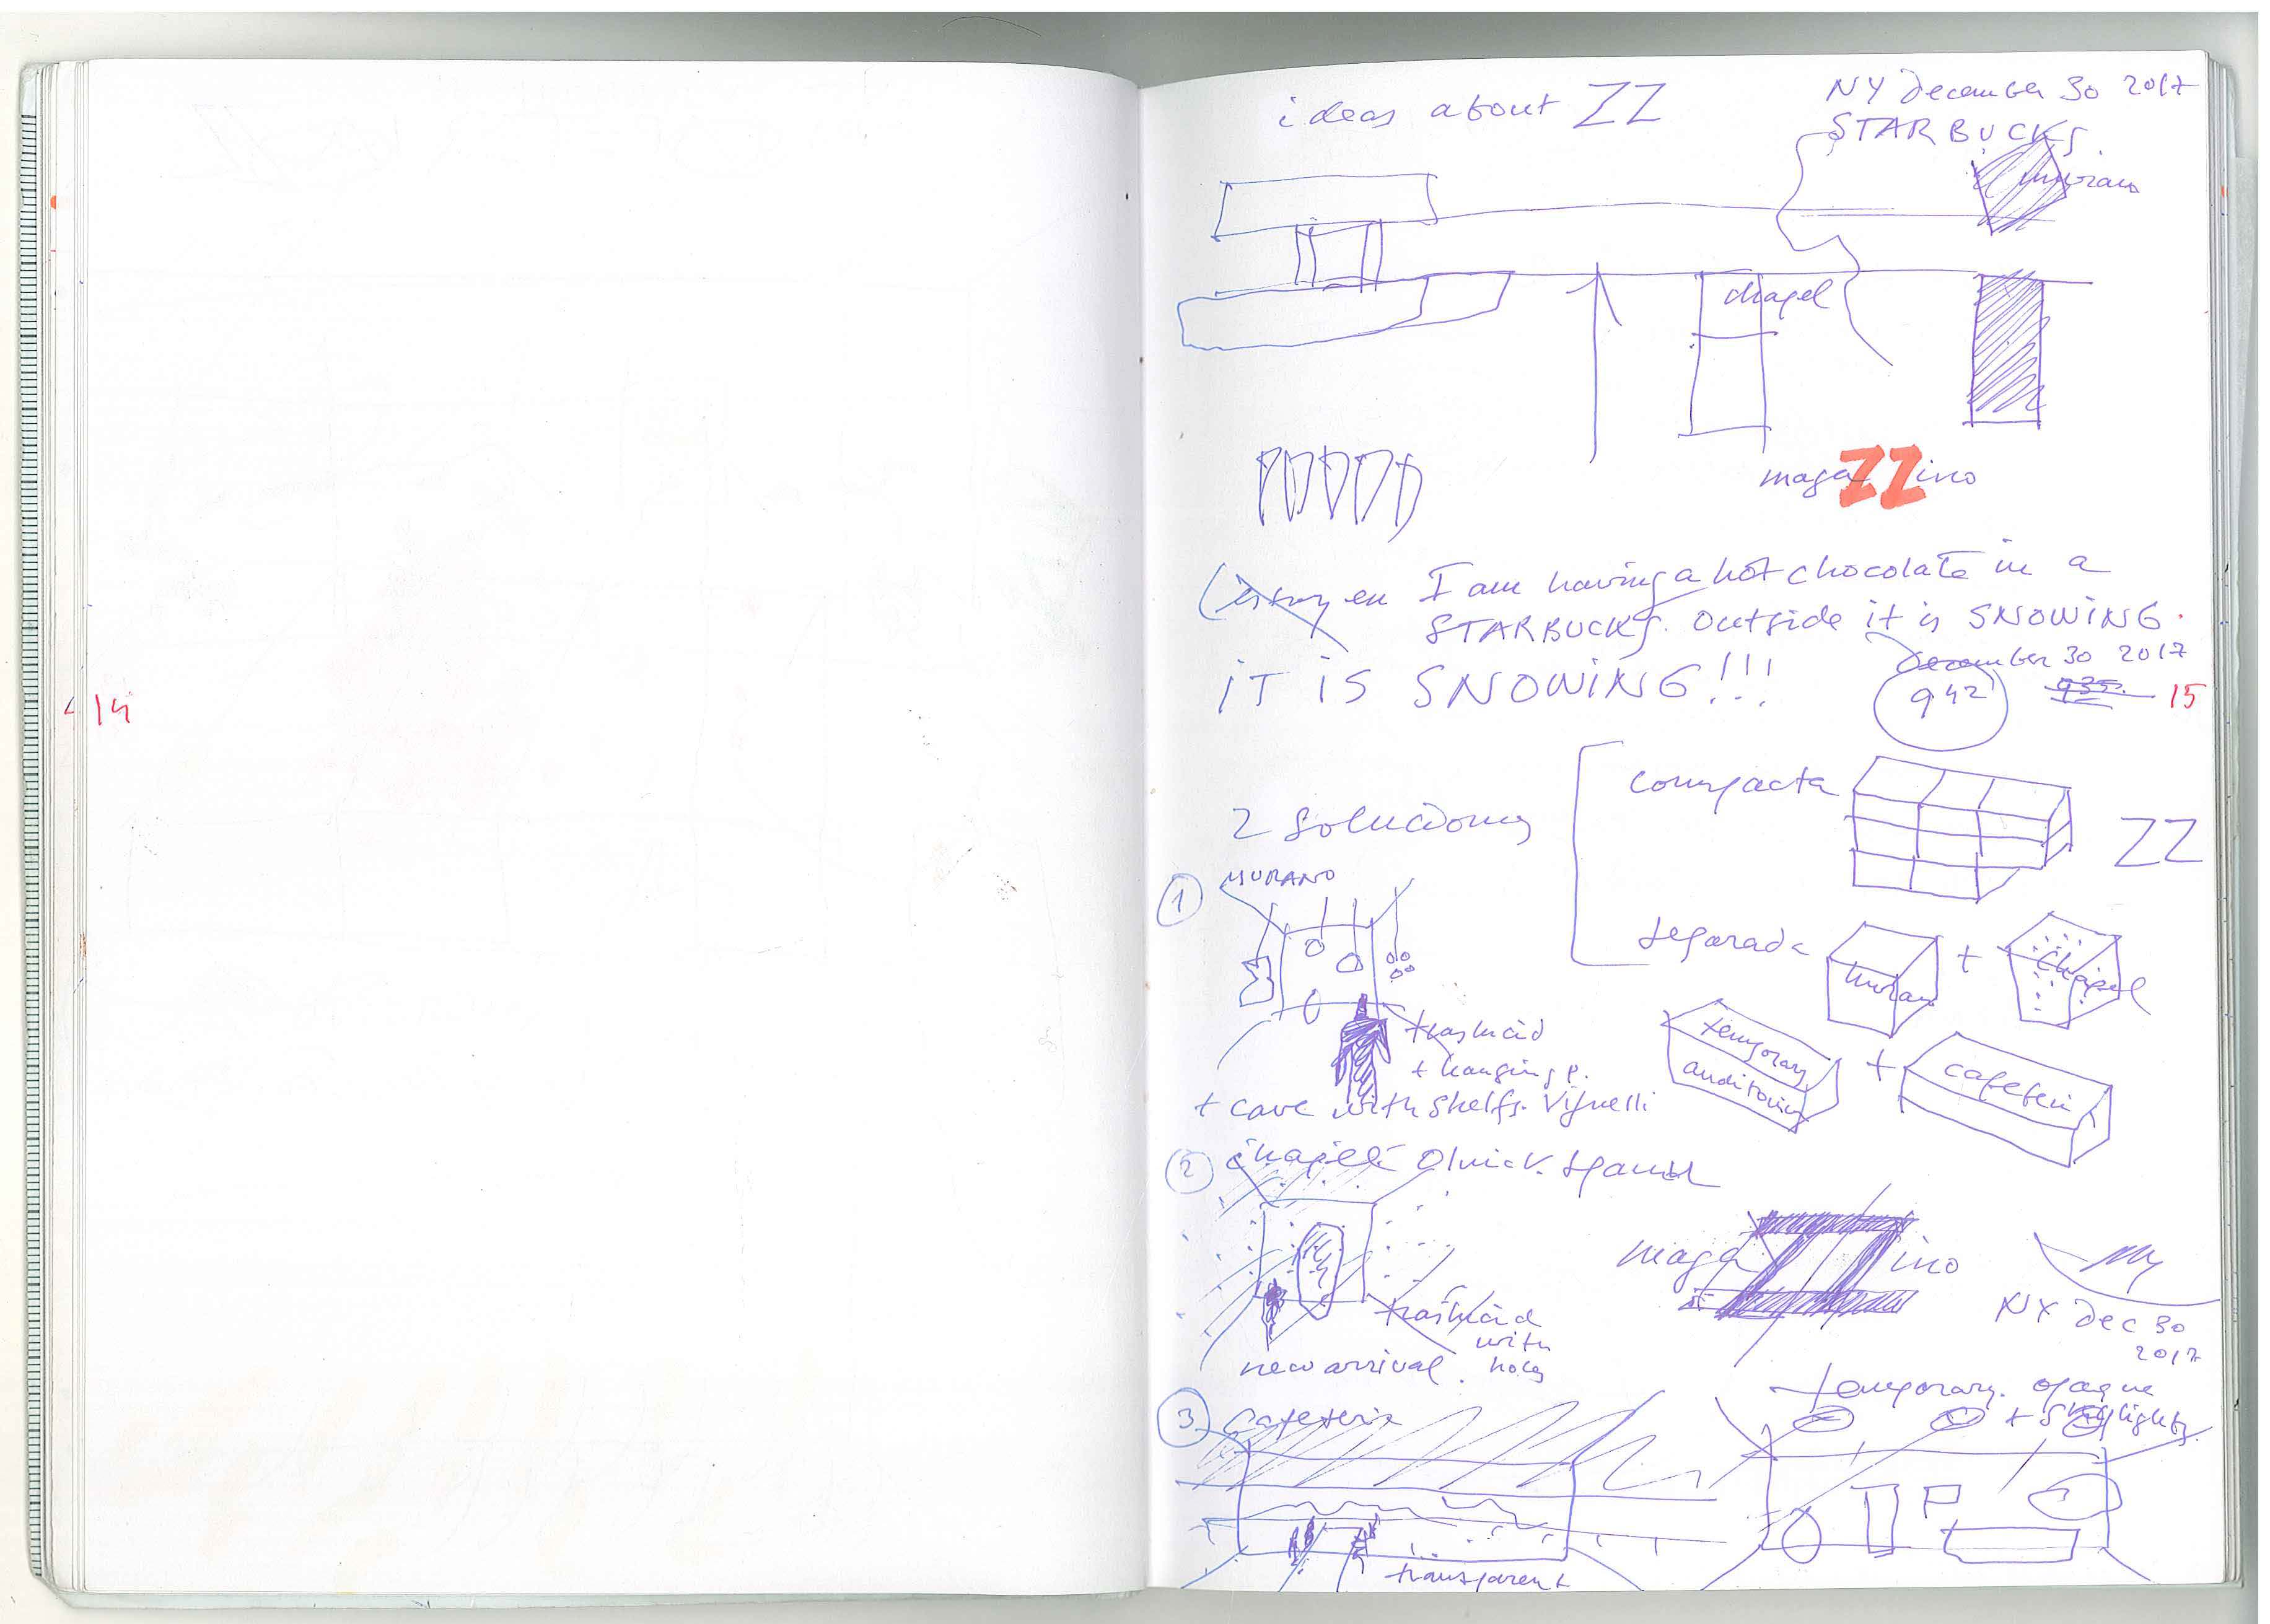 14
ideas about ZZ
NY December 30 2017
STARBUCKS.
murano
chapel
magaZZino
I am having a hot chocolate in a
STARBUCKS. Outside it is SNOWING.
IT IS SNOWING!!!
December 30 2017
942
935
15
2 soluciones
compacta
ZZ
separada
murano
+
chapel
temporary
auditorium
+
cafeteri
1
MURANO
traslucid
+ hanging p.
+ cave with shelfs. Vignelli
2
Olnick. Spanu
traslucid
with
holes
new arrival.
magaZZino
NY Dec 30
2017
3
Cafeteria
transparent
temporary. opaque
+ skylights.